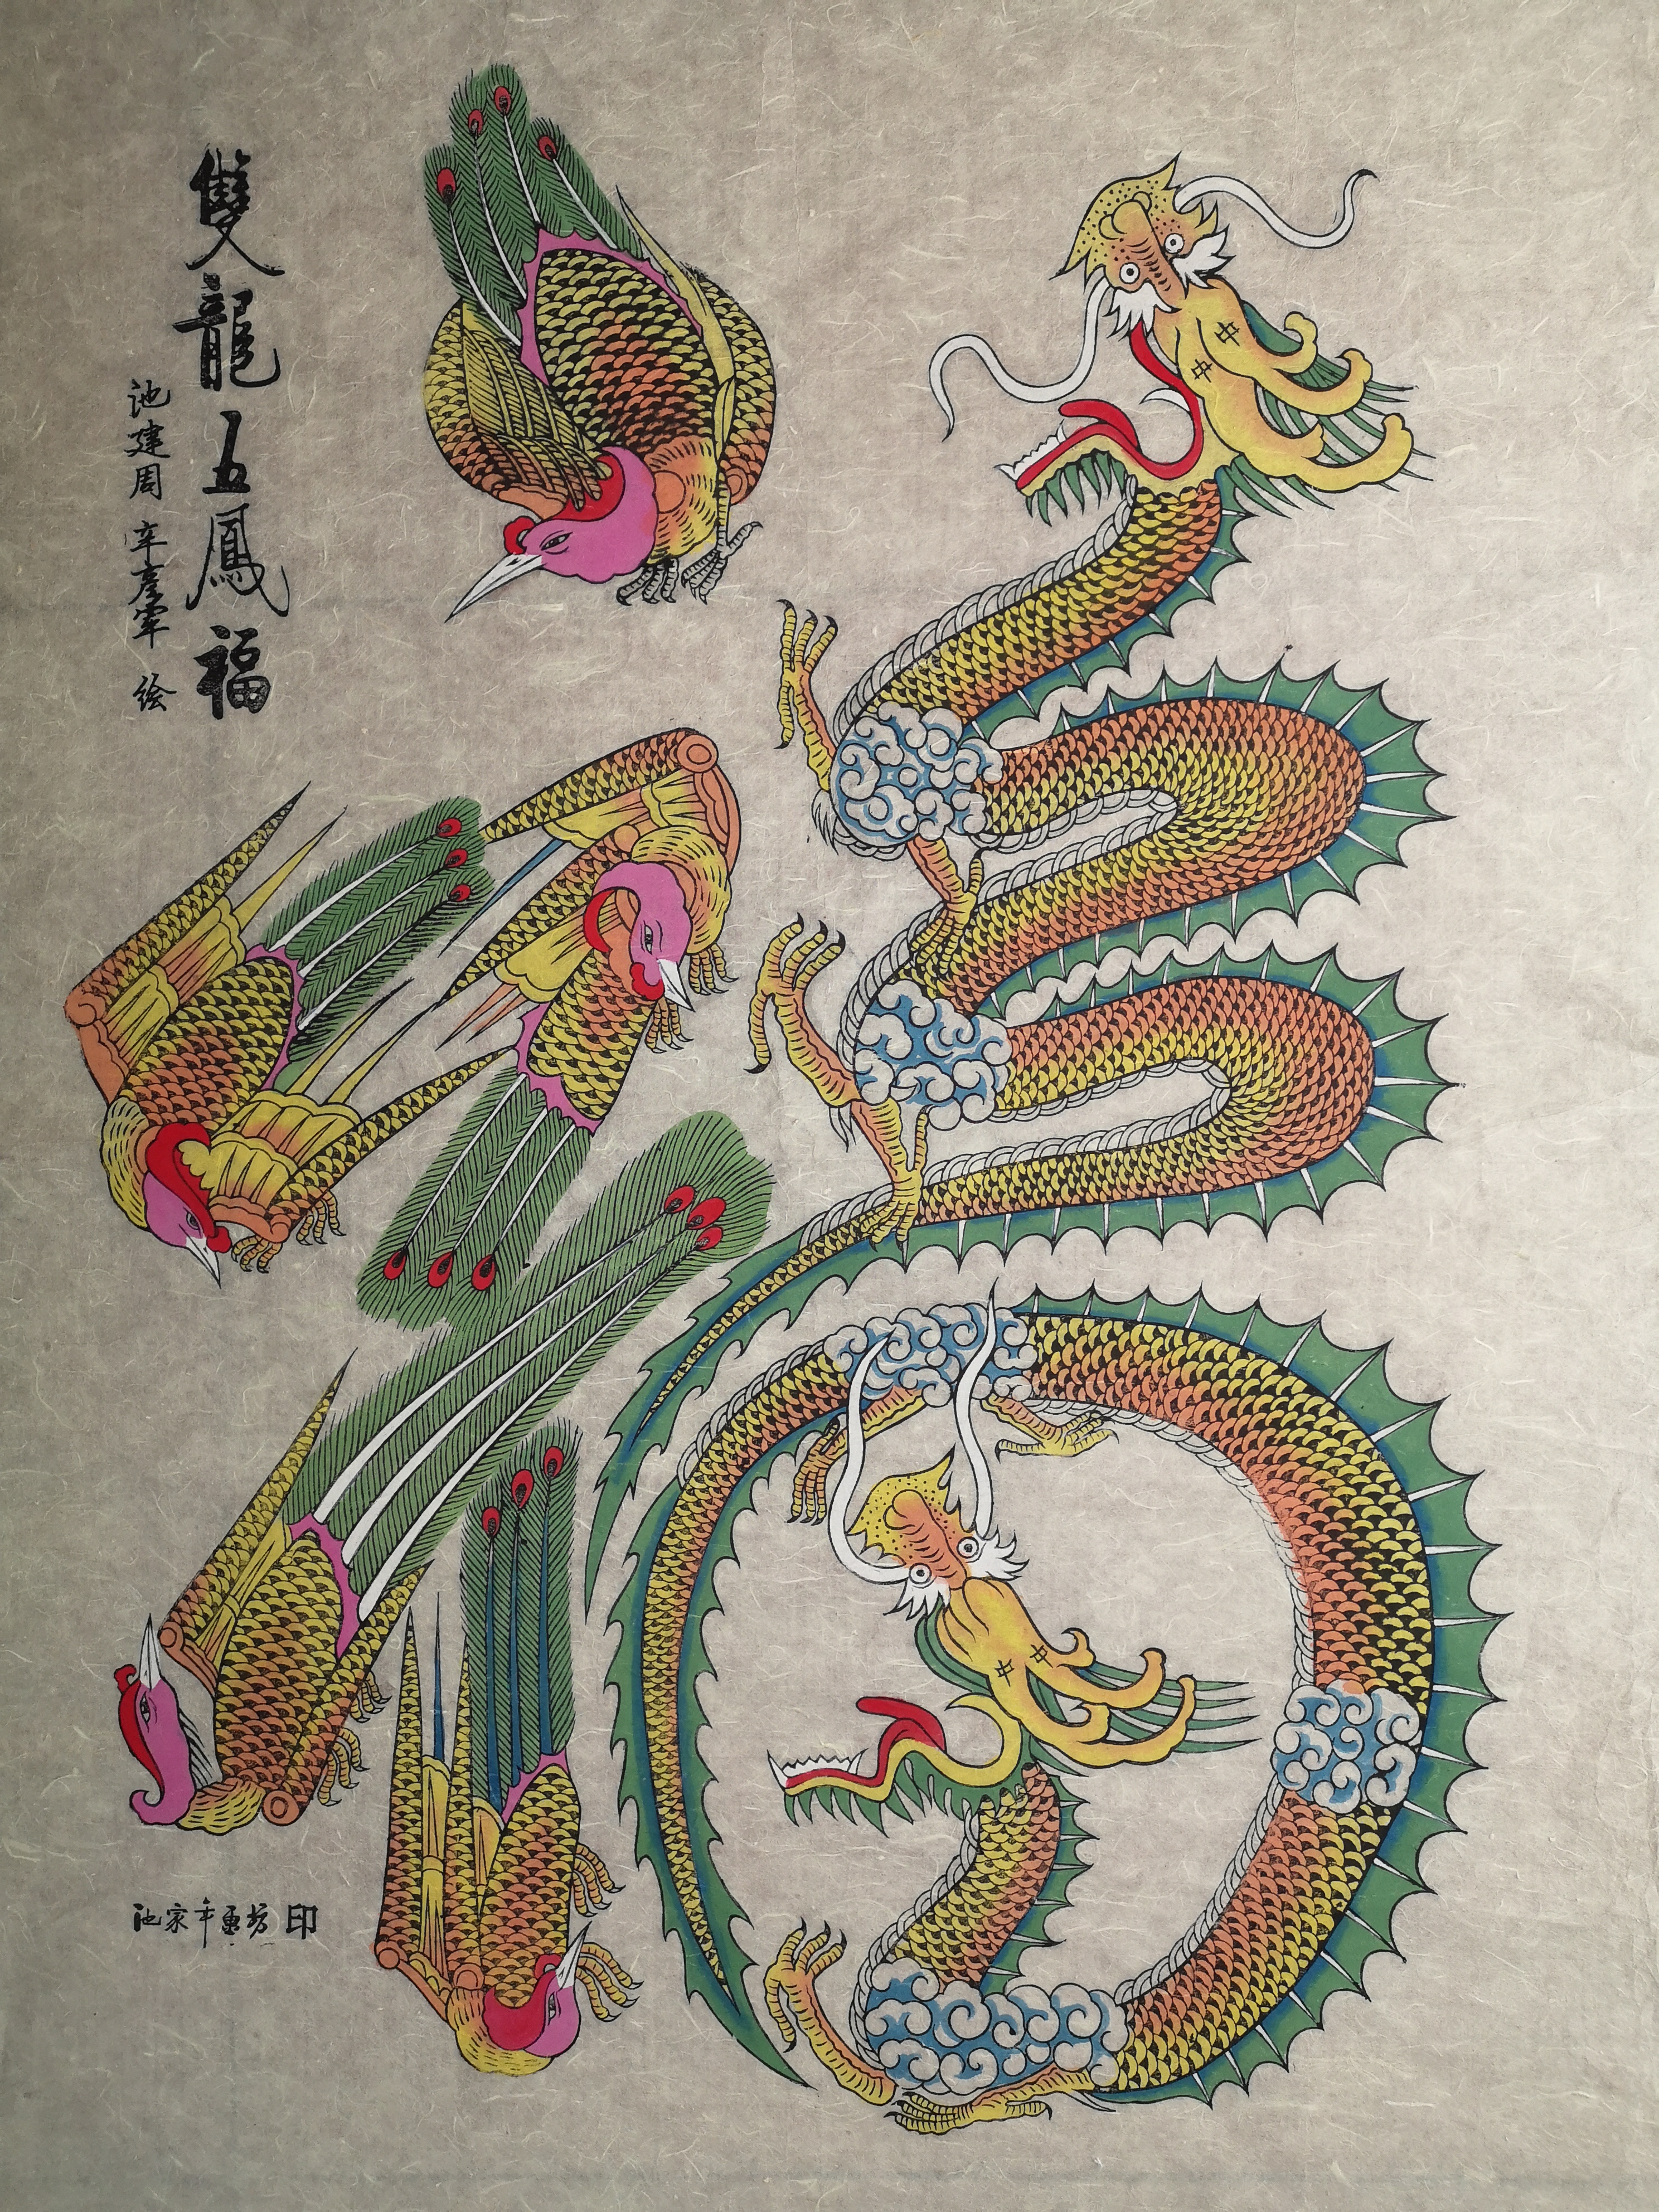 雙龍五鳳福
池建周 辛彦军 绘
池家年画坊印